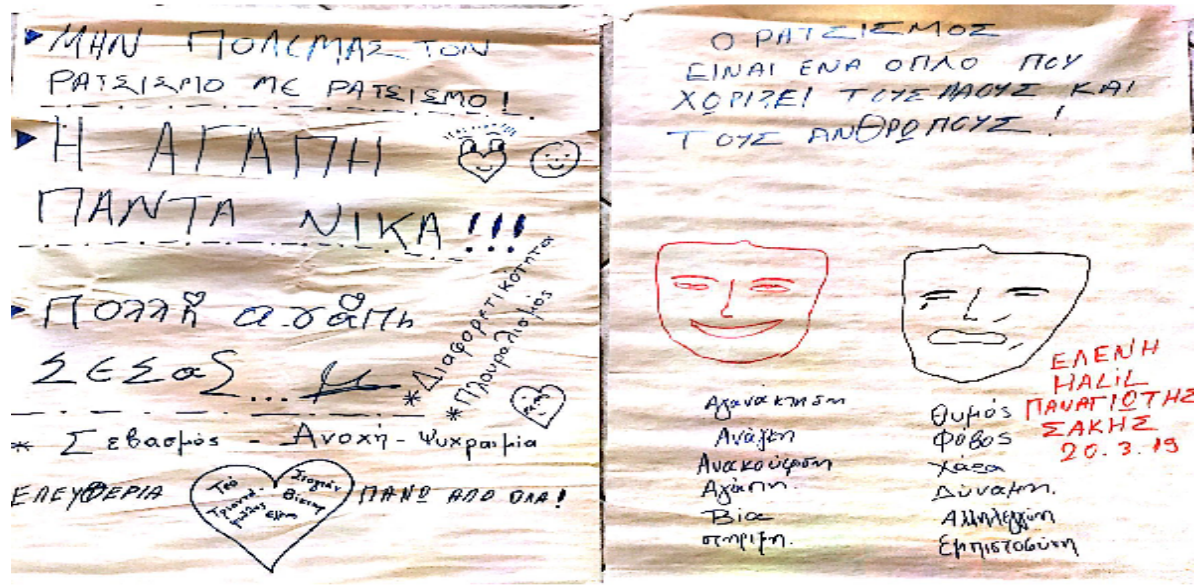 ΜΗΝ ΠΟΛΕΜΑΣ ΤΟΝ
ΡΑΤΣΙΣΜΟ ΜΕ ΡΑΤΣΙΣΜΟ!
Η ΑΓΑΠΗ
ΠΑΝΤΑ ΝΙΚΑ!!!
Πολλή αγάπη
ΣΕΣας...
* Διαφορετικότητα
* Πλουραλισμός
* Σεβασμός - Ανοχή - Ψυχραιμία
ΕΛΕΥΘΕΡΙΑ
Τεό
Στογιάν
Βίκτωρ
Ελένη
ΠΑΝΩ ΑΠΟ ΟΛΑ!
Ο ΡΑΤΣΙΣΜΟΣ
ΕΙΝΑΙ ΕΝΑ ΟΠΛΟ ΠΟΥ
ΧΩΡΙΖΕΙ ΤΟΥΣ ΛΑΟΥΣ ΚΑΙ
ΤΟΥΣ ΑΝΘΡΩΠΟΥΣ!
Αγανάκτηση
Ανάγκη
Ανακούφιση
Αγάπη.
Βία
στήριξη.
Θυμός
Φόβος
Χάος
Δύναμη.
Αλληλεγγύη
Εμπιστοσύνη
ΕΛΕΝΗ
HALIL
ΠΑΝΑΓΙΩΤΗΣ
ΣΑΚΗΣ
20.3.19